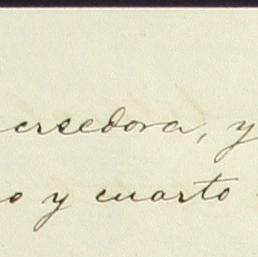 ersedora, y
o y cuarto